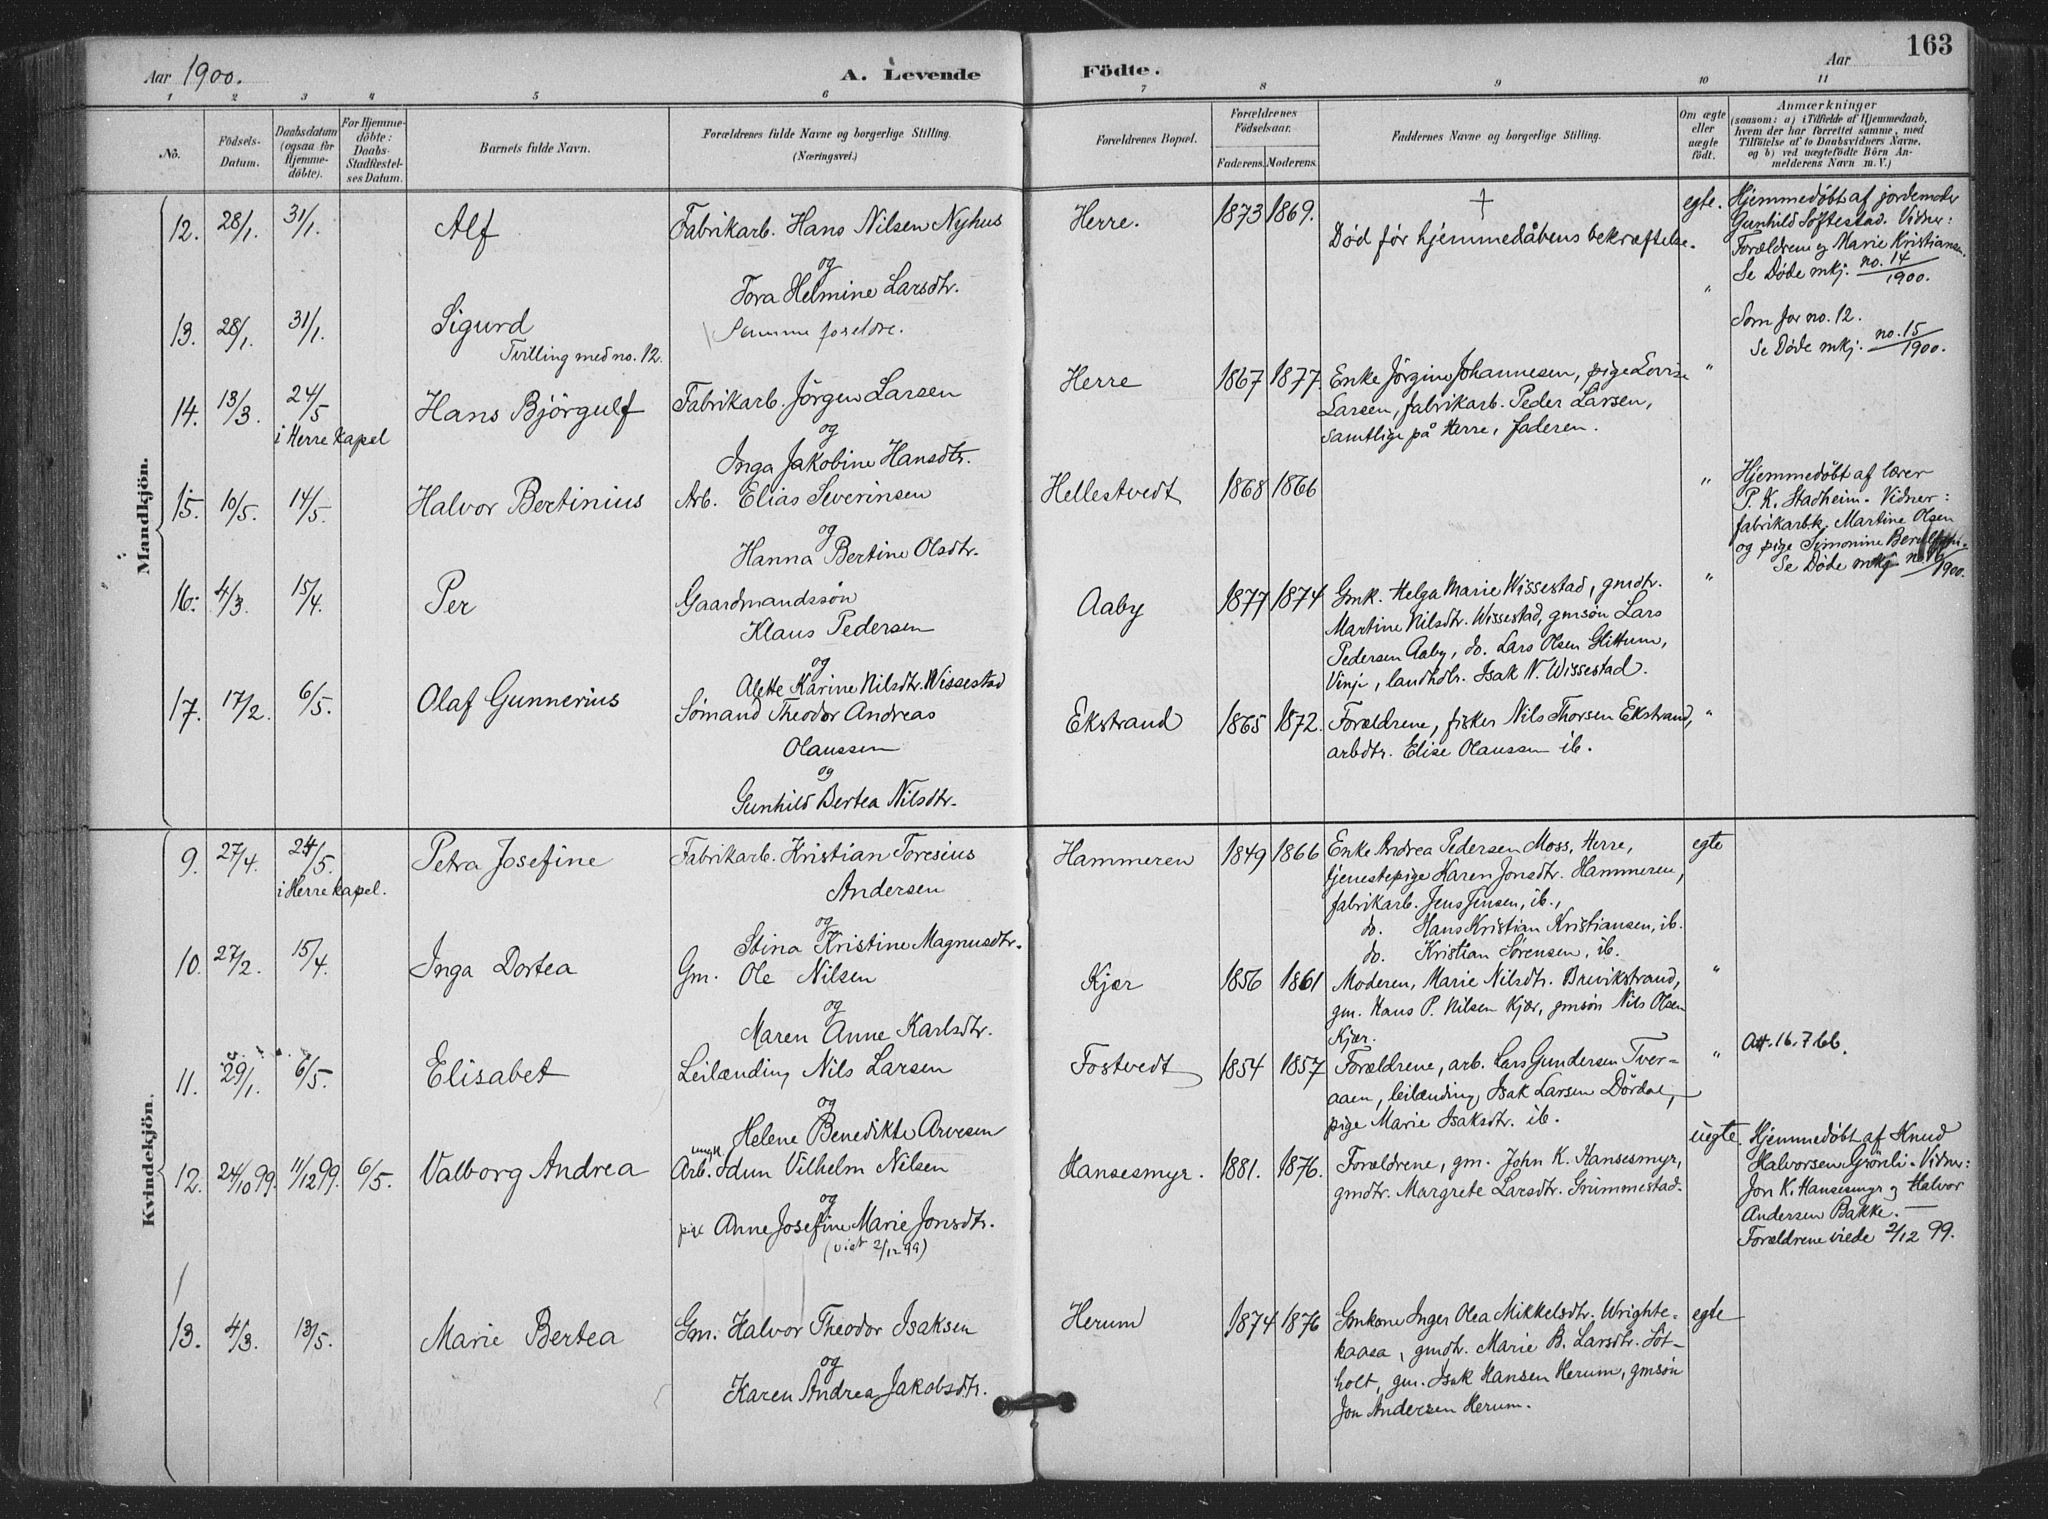 163
Aar 1900.
A. Levende Födte.
Aar
1 2 3 4 5 6 7 8 9 10 11
No.
Födsels-
Datum.
Daabsdatum
(ogsaa for
Hjemme-
döbte).
For Hjemme-
döbte:
Daabs-
Stadfæstel-
ses Datum.
Barnets fulde Navn.
Forældrenes fulde Navne og borgerlige Stilling.
(Næringsvei.)
Forældrenes Bopæl.
Forældrenes
Födselsaar.
Faderens. Moderens.
Faddernes Navne og borgerlige Stilling.
Om ægte
eller
uægte
födt.
Anmærkninger
(saasom: a) i Tilfælde af Hjemmedaab,
hvem der har forrettet samme, med
Tilföielse af to Daabsvidners Navne,
og b) ved uægtefödte Börn An-
melderens Navn m. V.)
Mandkjön.
12. 28/1. 31/1. Alf
Fabrikarb. Hans Nilsen Nyhus
og
Tora Helmine Larsdtr.
Herre. 1873 1869.
†
Død før hjemmedåbens bekræftelse.
egte.
Hjemmedøbt af jordemoder
Gunhild Softestad. Vidner:
Forældrene og Marie Kristiansen.
Se Døde mkj. no. 14/1900.
13. 28/1. 31/1. Sigurd
Tvilling med no. 12.
Samme foreldre.
"
Som for no. 12.
Se Døde mkj. no. 15/1900.
14. 13/3. 24/5
i Herre kapel
Hans Björgulf
Fabrikarb. Jörgen Larsen
og
Inga Jakobine Hansdtr.
Herre 1867 1877.
Enke Jörgine Johannesen, pige Lovise
Larsen, fabrikarb. Peder Larsen,
samtlige på Herre, faderen.
"
15. 10/5. 14/5. Halvor Bertinius
Arb. Elias Severinsen
og
Hanna Bertine Olsdtr.
Hellestvedt 1868 1866
"
Hjemmedøbt af lærer
P. K. Stadheim. Vidner:
fabrikarb.k. Martine Olsen
og pige Simonine
Se Døde mkj. no. 16/1900.
16. 4/3. 15/4. Per
Gaardmandssøn
Klaus Pedersen
og
Alette Karine Nilsdtr. Wissestad
Aaby 1877 1874
Gmk. Helga Marie Wissestad, gmdtr.
Martine Nilsdtr. Wissestad, gmsøn Lars
Pedersen Aaby, do. Lars Olsen Glittum,
Vinje, landhdlr. Isak N. Wissestad.
"
17. 17/2. 6/5. Olaf Gunnerius
Sømand Theodor Andreas
Olaussen
og
Gunhild Bertea Nilsdtr.
Ekstrand 1865 1872.
Forældrene, fisker Nils Thorsen Ekstrand,
arbdtr. Elise Olaussen ib.
"
Kvindekjön.
9. 27/4. 24/5.
i Herre kapel.
Petra Josefine
Fabrikarb. Kristian Toresius
Andersen
og
Stina Kristine Magnusdtr.
Hammeren 1849 1866
Enke Andrea Pedersen Moss, Herre,
tjenestepige Karen Jonsdtr. Hammeren,
fabrikarb. Jens Jensen, ib.,
do. Hans Kristian Kristiansen, ib.
do. Kristian Sørensen, ib.
egte
10. 27/2. 15/4. Inga Dortea
Gm. Ole Nilsen
og
Maren Anne Karlsdtr.
Kjær 1856 1861
Moderen, Marie Nilsdtr. Brevikstrand,
gm. Hans P. Nilsen Kjær, gmsøn Nils Olsen
Kjær.
"
11. 29/1. 6/5. Elisabet
Leilænding Nils Larsen
og
Helene Benedikte Arvesen
Fostvedt 1854 1857
Forældrene, arb. Lars Gundersen Tver-
aaen, leilænding Isak Larsen Dördal,
pige Marie Isaksdtr. ib.
"
Att. 16.7 66.
12. 24/10 99. 11/12 99. 6/5. Valborg Andrea
ungk
Arb. Vilhelm Nilsen
og
pige Anne Josefine Marie Jonsdtr.
(viet 2/12 99)
Hansesmyr. 1881. 1876.
Forældrene, gm. John K. Hansesmyr,
gmdtr. Margrete Larsdtr. Grummestad.
uegte
Hjemmedøbt af Knud
Halvorsen Grönli. Vidner:
Jon K. Hansesmyr og Halvor
Andersen Bakke. —
Forældrene viede 2/12 99.
13. 4/3. 13/5. Marie Bertea
Gm. Halvor Theodor Isaksen
og
Karen Andrea Jakobsdtr.
Herum 1874 1876
Gmkone Inger Olea Mikkelsdtr. Wrighte-
kaasa, gmdtr. Marie B. Larsdtr. Söt-
holt, gm. Isak Hansen Herum, gmsøn
Jon Andersen Herum.
egte